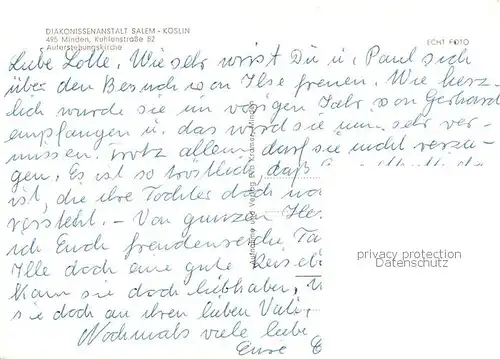 DIAKONISSENANSTALT SALEM - KÖSLIN
495 Minden, Kuhlenstraße 82
Auferstehungskirche
ECHT FOTO
Liebe Lotte, Wie sehr wirst Du u. Paul sich
über den Besuch von Ilse freuen. Wie herz-
lich wurde sie im vorigen Jahr von Gerhard
empfangen u. das wird sie nun sehr ver-
missen. Trotz allem darf sie nicht verza-
gen. Es ist so tröstlich, daß
ist, die ihre Tochter doch
versteht. - Von ganzem
ich Euch freudenreiche Ta
Ilse doch eine gute
Kann sie doch liebhaben,
sie doch an ihren lieben Vati,
Nochmals viele liebe
Eure
privacy protection
Datenschutz